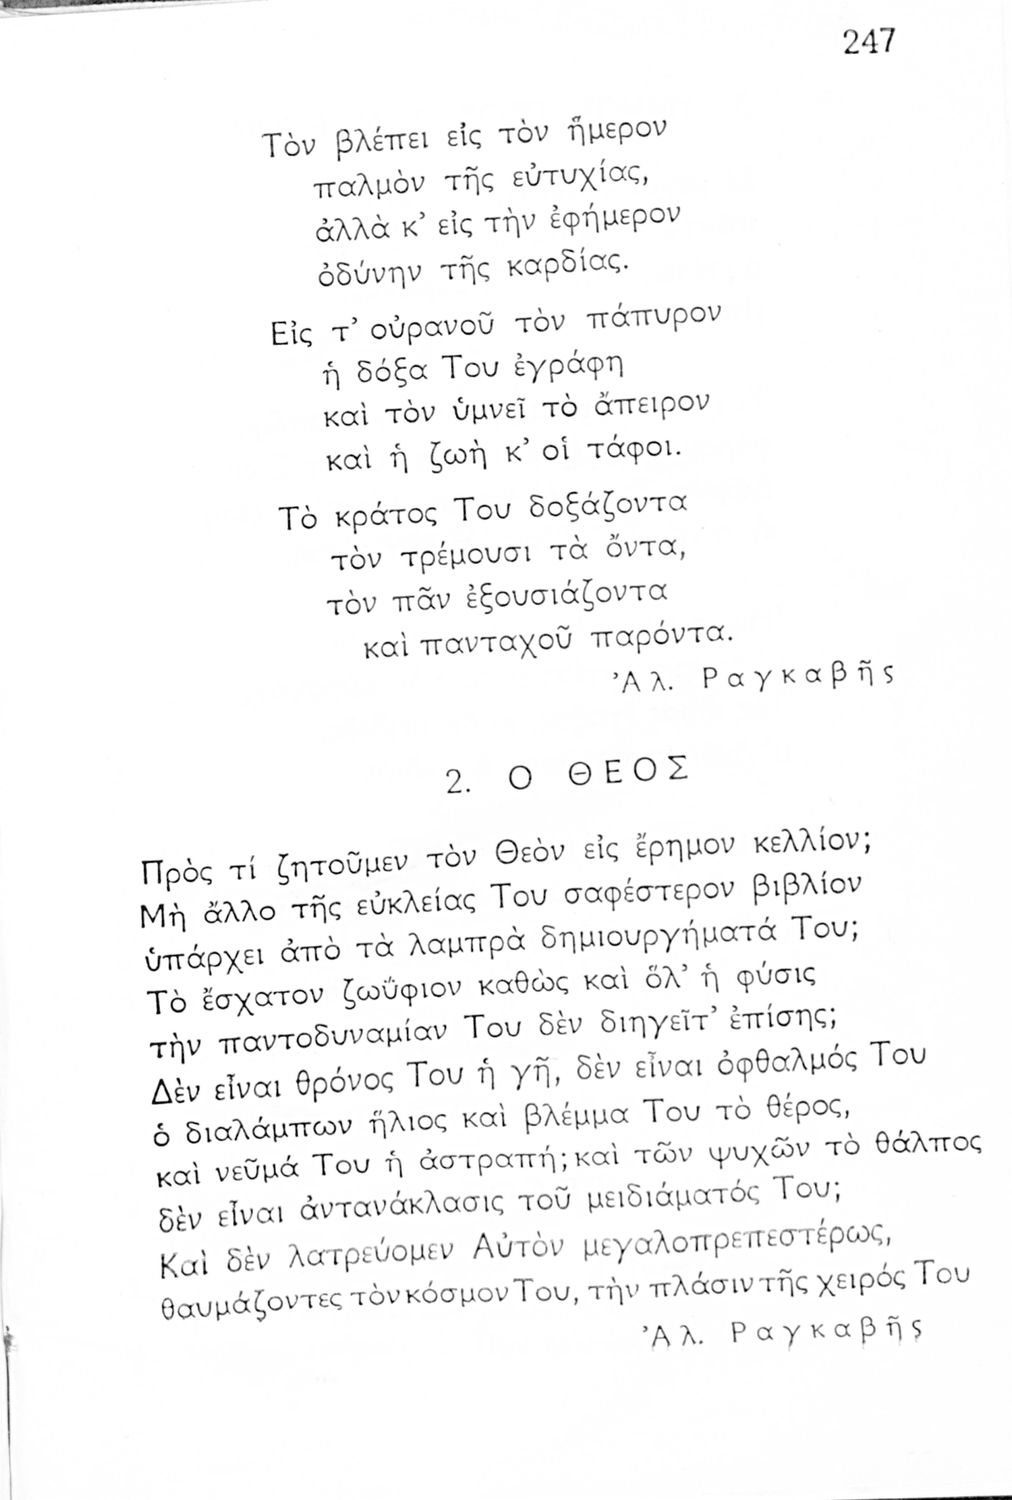 247
Τὸν βλέπει εἰς τὸν ἥμερον
παλμὸν τῆς εὐτυχίας,
ἀλλὰ κ’ εἰς τὴν ἐφήμερον
ὀδύνην τῆς καρδίας.
Εἰς τ’ οὐρανοῦ τὸν πάπυρον
ἡ δόξα Του ἐγράφη
καὶ τὸν ὑμνεῖ τὸ ἄπειρον
καὶ ἡ ζωὴ κ’ οἱ τάφοι.
Τὸ κράτος Του δοξάζοντα
τὸν τρέμουσι τὰ ὄντα,
τὸν πᾶν ἐξουσιάζοντα
καὶ πανταχοῦ παρόντα.
Ἀλ. Ραγκαβῆς
2. Ο ΘΕΟΣ
Πρὸς τί ζητοῦμεν τὸν Θεὸν εἰς ἔρημον κελλίον;
Μὴ ἄλλο τῆς εὐκλείας Του σαφέστερον βιβλίον
ὑπάρχει ἀπὸ τὰ λαμπρὰ δημιουργήματά Του;
Τὸ ἔσχατον ζωΰφιον καθὼς καὶ ὅλ’ ἡ φύσις
τὴν παντοδυναμίαν Του δὲν διηγεῖτ’ ἐπίσης;
Δὲν εἶναι θρόνος Του ἡ γῆ, δὲν εἶναι ὀφθαλμός Του
ὁ διαλάμπων ἥλιος καὶ βλέμμα Του τὸ θέρος,
καὶ νεῦμά Του ἡ ἀστραπή; καὶ τῶν ψυχῶν τὸ θάλπος
δὲν εἶναι ἀντανάκλασις τοῦ μειδιάματός Του;
Καὶ δὲν λατρεύομεν Αὐτὸν μεγαλοπρεπεστέρως,
θαυμάζοντες τὸν κόσμον Του, τὴν πλάσιν τῆς χειρός Του
Ἀλ. Ραγκαβῆς